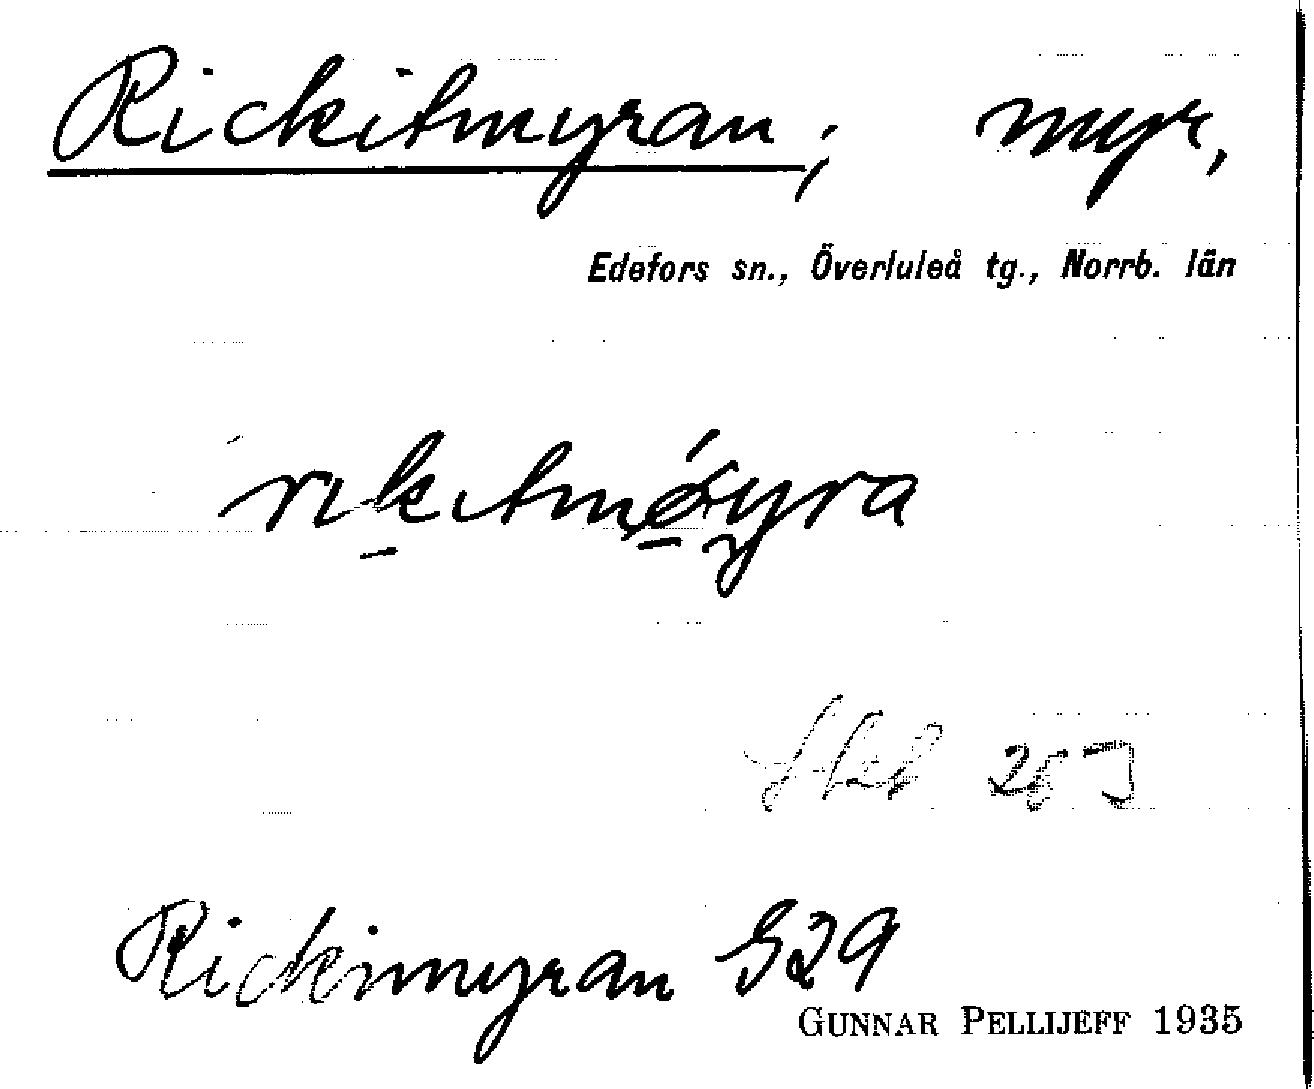 Rickitmyran, myr,
Edefors sn., Överluleå tg., Norrb. län
rikitmöyra
25J
Rickimyran S29
GUNNAR PELLIJEFF 1935